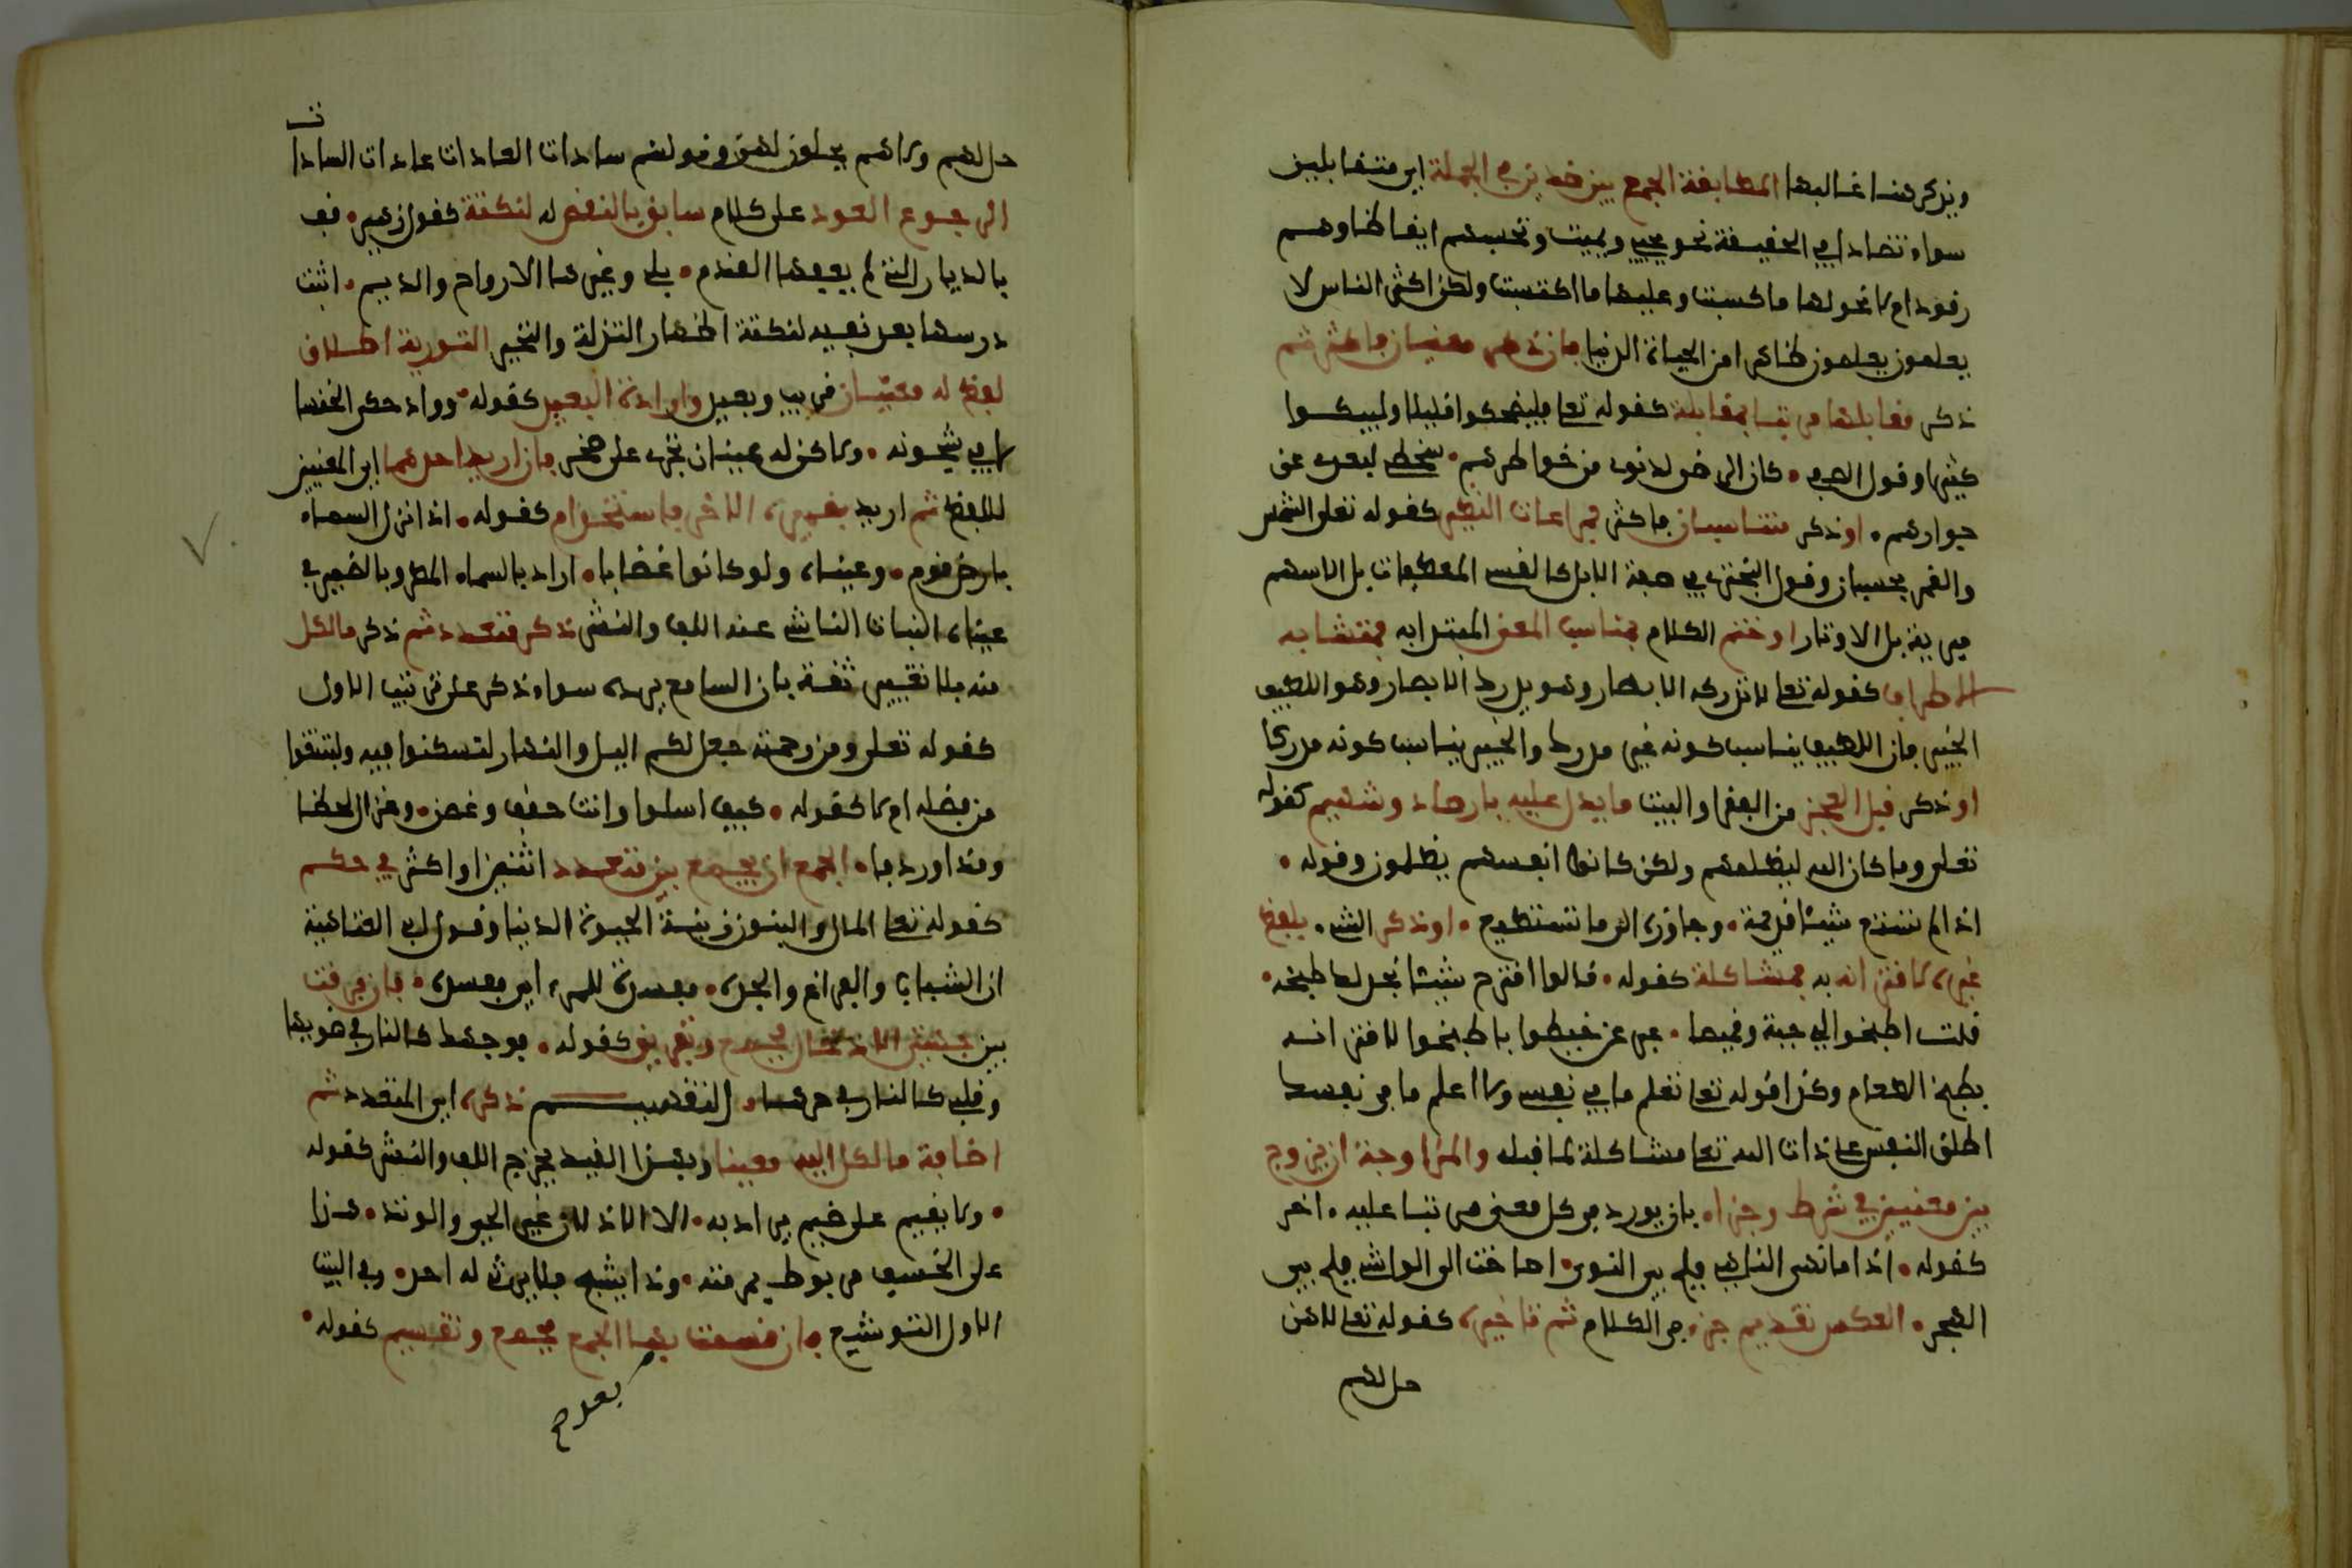 ونذكر هنا غالبها المطابقة الجمع بين ضدين في الجملة اي متقابلين
سواء تضادا في الحقيقة نحو يحيي ويميت وتحسبهم ايقاظا وهم
رقود ام لا نحو لها ما كسبت وعليها ما اكتسبت ولكن اكثر الناس لا
يعلمون يعلمون ظاهرا من الحياة الدنيا فان ذكر معنيان فاكثر ثم
ذكر مقابلها مرتبا فمقابلة كقوله تعا فليضحكوا قليلا وليبكوا
كثيرا وقول الصفي كان الرضى لدنوي من خواطرهم سخطي لبعدي عن
جوارهم او ذكر متناسبان فاكثر فمراعات النظير كقوله تعلى الشمس
والقمر بحسبان وقول البحتري في صفة الابل كالقسي المعطفات بل الاسهم
مبرية بل الاوتار او ختم الكلام بمناسب المعنى المبتدا به فمتشابه
الاطراف كقوله تعا لا تدركه الابصار وهو يدرك الابصار وهو اللطيف
الخبير فان اللطيف يناسب كونه غير مدرك والخبير يناسب كونه مدركا
او ذكر قبل العجز من الفقرة او البيت ما يدل عليه فارصاد وتسهيم كقوله
تعلى وما كان الله ليظلمهم ولكن كانوا انفسهم يظلمون وقوله
اذا لم تستطع شيئا فدعه وجاوزه الى ما تستطيع او ذكر الشيء بلفظ
غيره لاقترانه به فمشاكلة كقوله قالوا اقترح شيئا نجد لك طبخه
قلت اطبخوا لي جبة وقميصا عبر عن خيطوا باطبخوا لاقترانه
بطبخ الطعام وكذا قوله تعا تعلم ما في نفسي ولا اعلم ما في نفسك
اطلق النفس على ذات الله تعا مشاكلة لما قبله والمزاوجة ان يزوج
بين معنيين في شرط وجزاء بان يورد في كل معنى مرتبا عليه اخر
كقوله اذا ما نهى الناهي فلج بي الهوى اصاخت الى الواشي فلج بي
الهجر العكس تقديم جزء في الكلام ثم تاخيره كقوله تعا لا هن
حل لهم
حل لهم ولا هم يحلون لهن وقولهم سادات العادات عادات السادات
الرجوع العود على كلام سابق بالنقض له لنكتة كقول زهير قف
بالديار التي لم يعفها القدم بلى وغيرها الارواح والديم اثبت
درسها بعد نفيه لنكتة اظهار التذلة والتحير التورية اطلاق
لفظ له معنيان قريب وبعيد وارادة البعيد كقوله وواد حكى الخنسا
لا في شجونه ولكن له عينان تجري على صخر فان اريد احدهما اي المعنيين
للفظ ثم اريد بضميره الاخر فاستخدام كقوله اذا نزل السماء
بارض قوم رعيناه ولو كانوا غضابا اراد بالسماء المطر وبالضمير في
رعيناه النبات الناشي عنه اللف والنشر ذكر متعدد ثم ذكر ما لكل
منه بلا تعيين ثقة بان السامع يرده سواء ذكر على ترتيب الاول
كقوله تعلى ومن رحمته جعل لكم اليل والنهار لتسكنوا فيه ولتبتغوا
من فضله ام لا كقوله كيف اسلوا وانت حقف وغصن وغزال لحظا
وقدا وردفا الجمع ان يجمع بين متعدد اثنين او اكثر في حكم
كقوله تعا المال والبنون زينة الحيوة الدنيا وقول ابي العتاهية
ان الشباب والفراغ والجده مفسدة للمرء اي مفسده فان فرقت
بين جهتي الادخال فجمع وتفريق كقوله فوجهك كالنار في ضوئها
وقلبي كالنار في حرها التقسيم ذكره اي المتعدد ثم
اضافة ما لكل اليه معينا وبهذا القيد يخرج اللف والنشر كقوله
ولا يقيم على ضيم يراد به الا الاذلان عير الحي والوتد هذا
على الخسف مربوط برمته وذا يشج فلا يرثي له احد وفي البيت
الاول التوشيع فان قسمت بعد الجمع فجمع وتقسيم كقوله